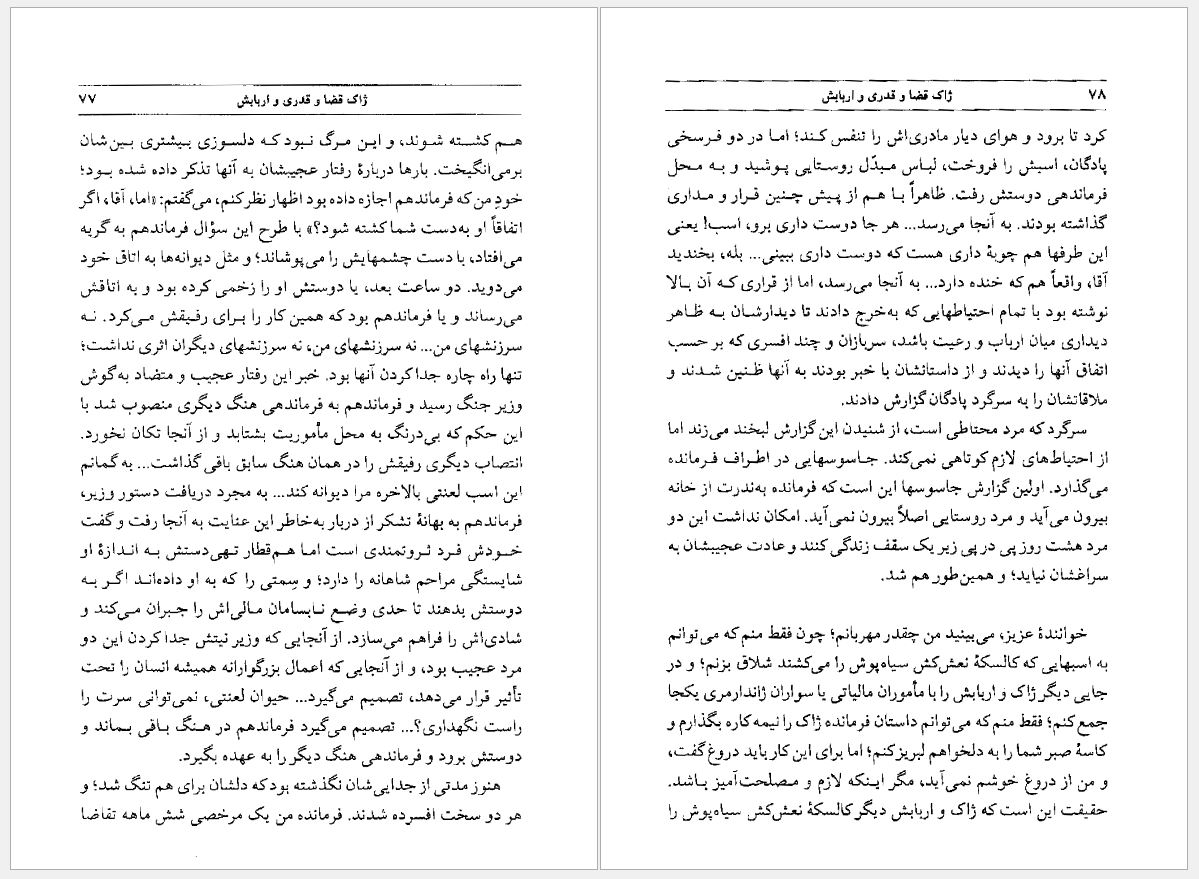 ژاک قضا و قدری و اربابش ۷۷
هم کشته شوند، و این مرگ نبود که دلسوزی بیشتری بین‌شان
برمی‌انگیخت. بارها دربارهٔ رفتار عجیبشان به آنها تذکر داده شده بود؛
خودِ من که فرماندهم اجازه داده بود اظهار نظر کنم، می‌گفتم: «اما، آقا، اگر
اتفاقاً او به‌دست شما کشته شود؟» با طرح این سؤال فرماندهم به گریه
می‌افتاد، با دست چشمهایش را می‌پوشاند؛ و مثل دیوانه‌ها به اتاق خود
می‌دوید. دو ساعت بعد، یا دوستش او را زخمی کرده بود و به اتاقش
می‌رساند و یا فرماندهم بود که همین کار را برای رفیقش می‌کرد. نه
سرزنشهای من... نه سرزنشهای من، نه سرزنشهای دیگران اثری نداشت؛
تنها راه چاره جدا کردن آنها بود. خبر این رفتار عجیب و متضاد به‌گوش
وزیر جنگ رسید و فرماندهم به فرماندهی هنگ دیگری منصوب شد با
این حکم که بی‌درنگ به محل مأموریت بشتابد و از آنجا تکان نخورد.
انتصاب دیگری رفیقش را در همان هنگ سابق باقی گذاشت... به گمانم
این اسب لعنتی بالاخره مرا دیوانه کند... به مجرد دریافت دستور وزیر،
فرماندهم به بهانهٔ تشکر از دربار به‌خاطر این عنایت به آنجا رفت و گفت
خودش فرد ثروتمندی است اما هم‌قطار تهی‌دستش به اندازهٔ او
شایستگی مراحم شاهانه را دارد؛ و سِمتی را که به او داده‌اند اگر به
دوستش بدهند تا حدی وضع نابسامان مالی‌اش را جبران می‌کند و
شادی‌اش را فراهم می‌سازد. از آنجایی که وزیر نیتش جدا کردن این دو
مرد عجیب بود، و از آنجایی که اعمال بزرگوارانه همیشه انسان را تحت
تأثیر قرار می‌دهد، تصمیم می‌گیرد... حیوان لعنتی، نمی‌توانی سرت را
راست نگهداری؟... تصمیم می‌گیرد فرماندهم در هنگ باقی بماند و
دوستش برود و فرماندهی هنگ دیگر را به عهده بگیرد.
هنوز مدتی از جدایی‌شان نگذشته بود که دلشان برای هم تنگ شد؛ و
هر دو سخت افسرده شدند. فرمانده من یک مرخصی شش ماهه تقاضا
۷۸ ژاک قضا و قدری و اربابش
کرد تا برود و هوای دیار مادری‌اش را تنفس کند؛ اما در دو فرسخی
پادگان، اسبش را فروخت، لباس مبدّل روستایی پوشید و به محل
فرماندهی دوستش رفت. ظاهراً با هم از پیش چنین قرار و مداری
گذاشته بودند. به آنجا می‌رسد... هر جا دوست داری برو، اسب! یعنی
این طرفها هم چوبهٔ داری هست که دوست داری ببینی... بله، بخندید
آقا، واقعاً هم که خنده دارد... به آنجا می‌رسد، اما از قراری که آن بالا
نوشته بود با تمام احتیاطهایی که به‌خرج دادند تا دیدارشان به ظاهر
دیداری میان ارباب و رعیت باشد، سربازان و چند افسری که بر حسب
اتفاق آنها را دیدند و از داستانشان با خبر بودند به آنها ظنین شدند و
ملاقاتشان را به سرگرد پادگان گزارش دادند.
سرگرد که مرد محتاطی است، از شنیدن این گزارش لبخند می‌زند اما
از احتیاط‌های لازم کوتاهی نمی‌کند. جاسوسهایی در اطراف فرمانده
می‌گذارد. اولین گزارش جاسوسها این است که فرمانده به‌ندرت از خانه
بیرون می‌آید و مرد روستایی اصلاً بیرون نمی‌آید. امکان نداشت این دو
مرد هشت روز پی در پی زیر یک سقف زندگی کنند و عادت عجیبشان به
سراغشان نیاید؛ و همین‌طور هم شد.
خوانندهٔ عزیز، می‌بینید من چقدر مهربانم؛ چون فقط منم که می‌توانم
به اسبهایی که کالسکهٔ نعش‌کش سیاه‌پوش را می‌کشند شلاق بزنم؛ و در
جایی دیگر ژاک و اربابش را با مأموران مالیاتی یا سواران ژاندارمری یکجا
جمع کنم؛ فقط منم که می‌توانم داستان فرمانده ژاک را نیمه‌کاره بگذارم و
کاسهٔ صبر شما را به دلخواهم لبریز کنم؛ اما برای این کار باید دروغ گفت،
و من از دروغ خوشم نمی‌آید، مگر اینکه لازم و مصلحت‌آمیز باشد.
حقیقت این است که ژاک و اربابش دیگر کالسکهٔ نعش‌کش سیاه‌پوش را